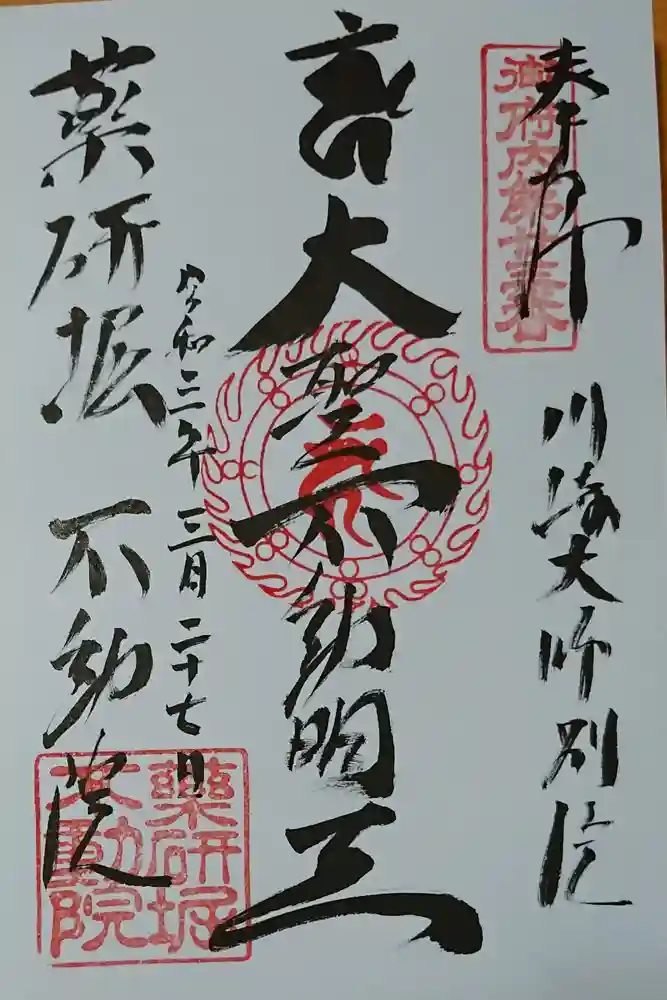 奉拝
御府内第廿三番
川崎大師別院
大聖不動明王
令和三年三月二十七日
薬研堀 不動院
藥研堀
不動院